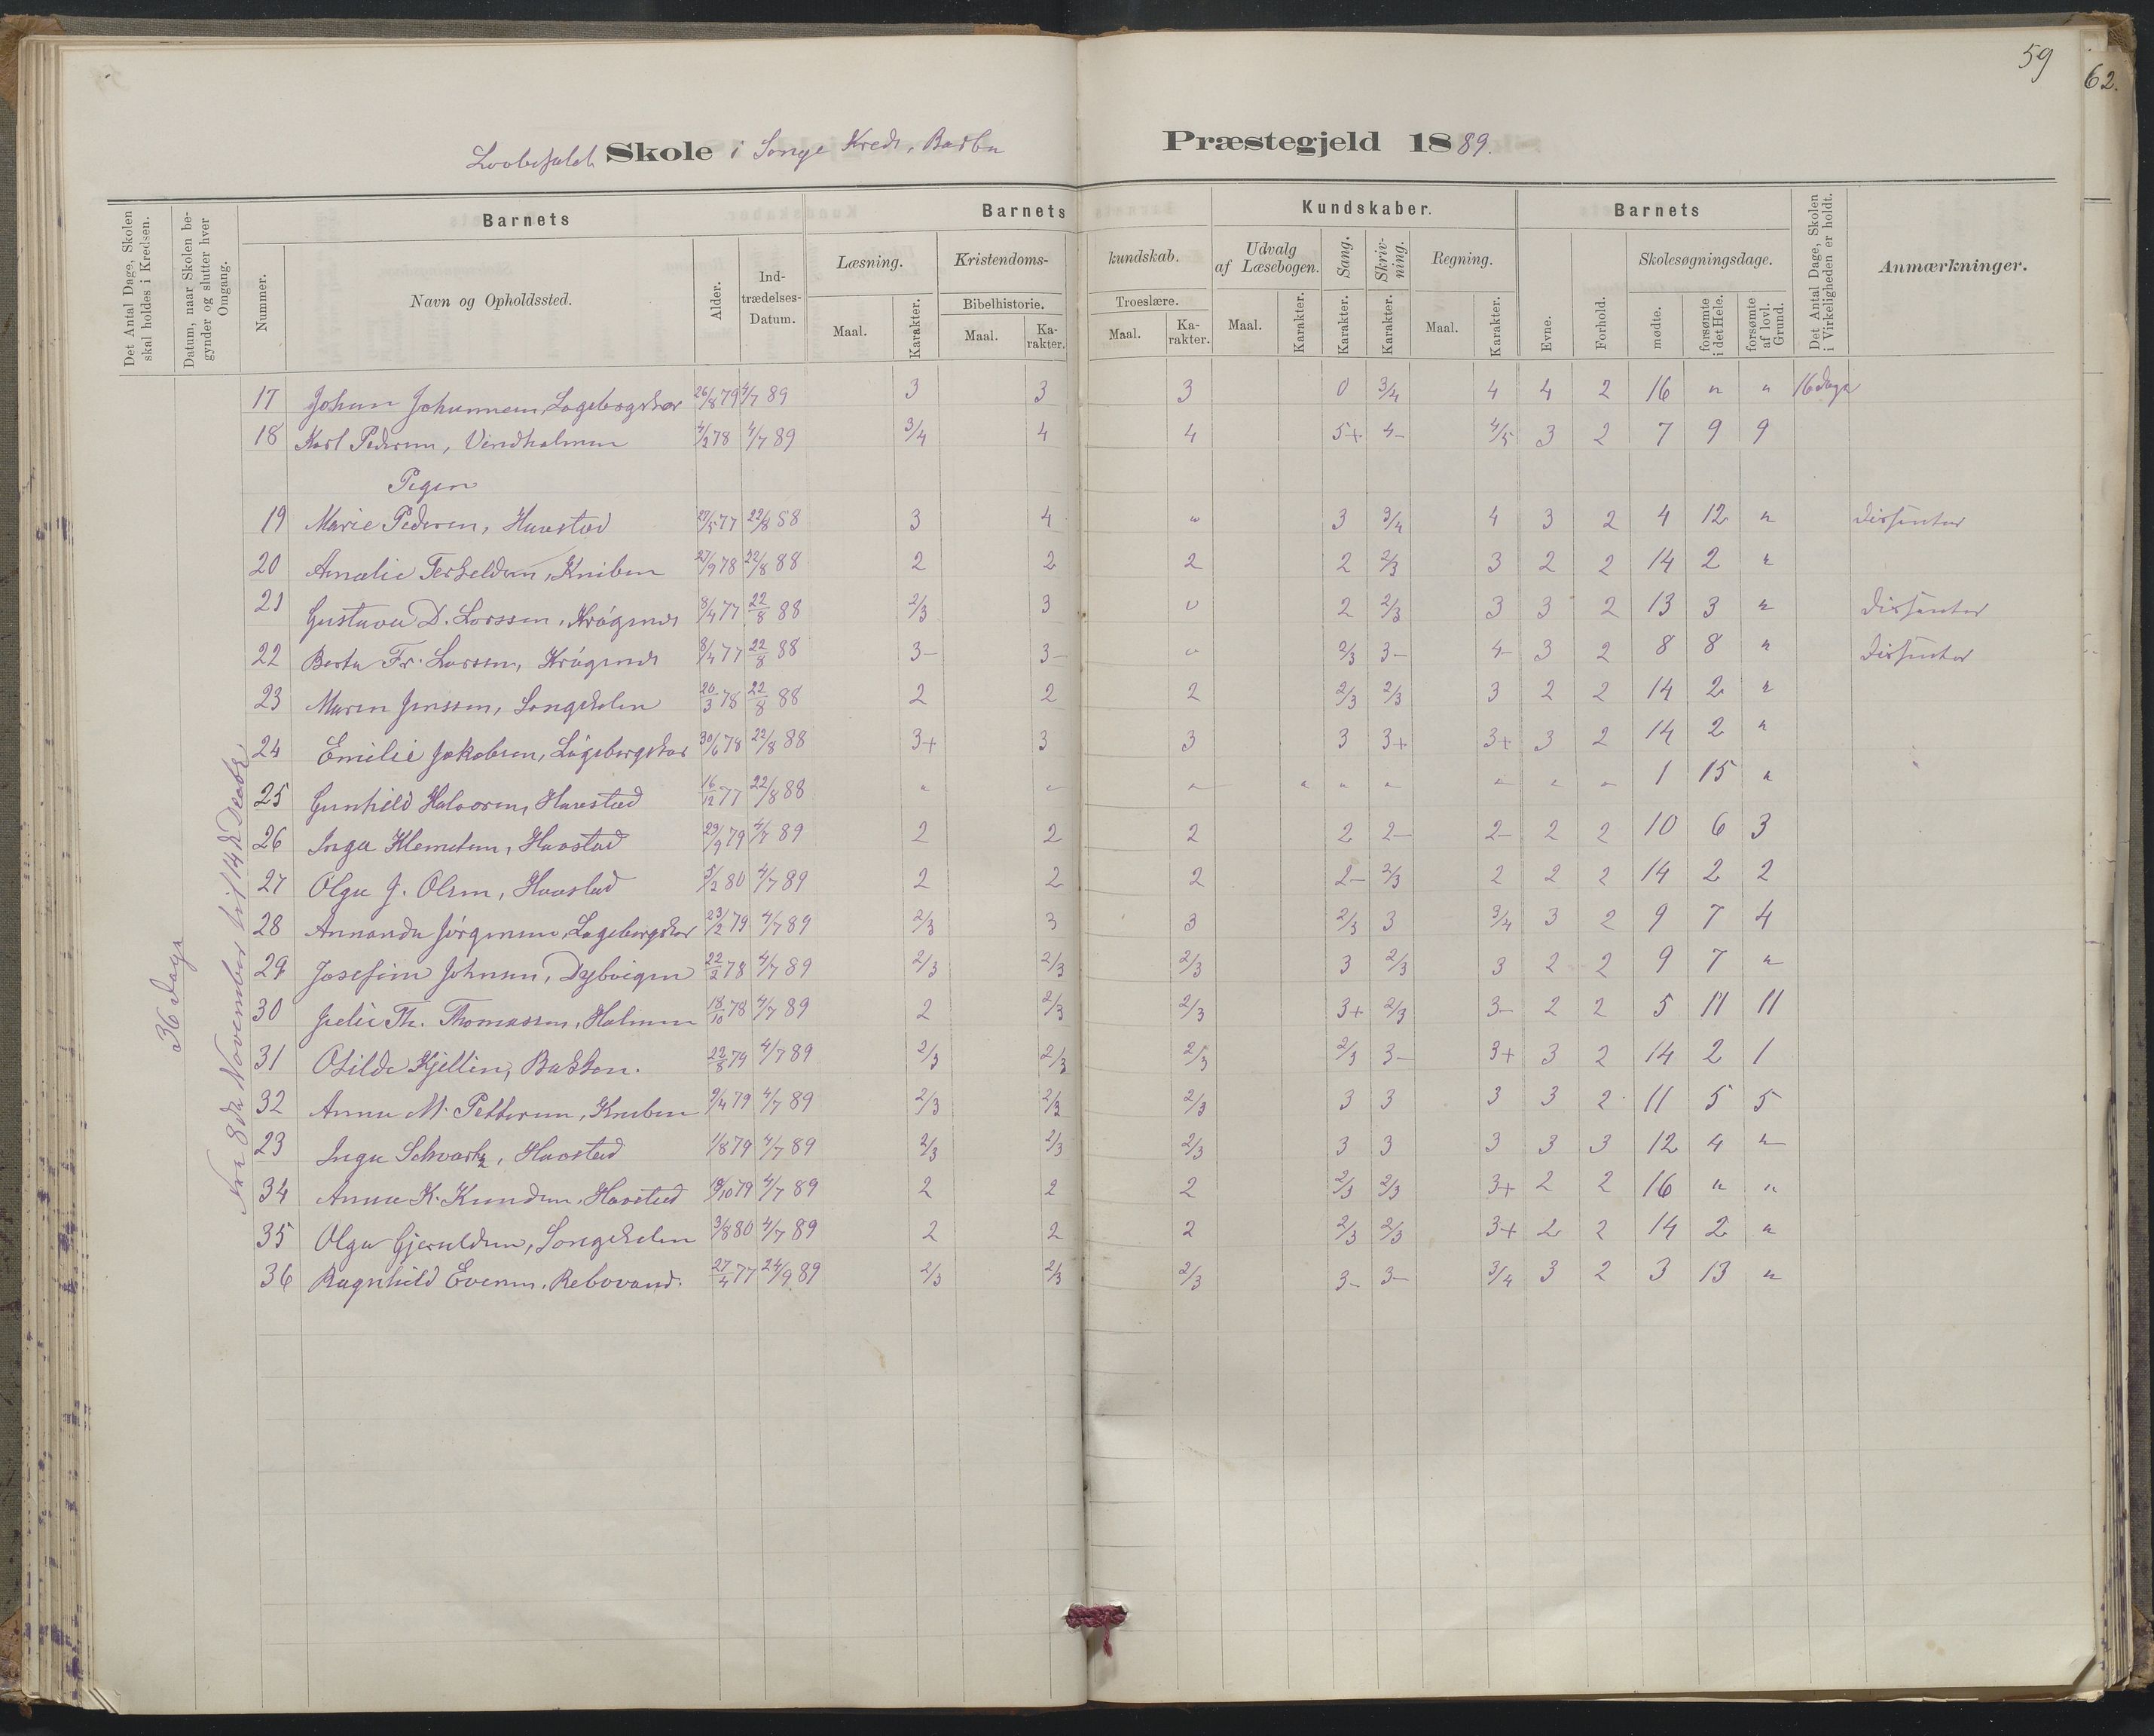 59
62.
Lovbefalet Skole i Songe Kreds, Barbu Præstegjeld 1889.
Det Antal Dage, Skolen skal holdes i Kredsen.
Datum, naar Skolen begynder og slutter hver Omgang.
Barnets
Nummer.
Navn og Opholdssted.
Alder.
Indtrædelses-Datum.
Barnets Kundskaber.
Læsning.
Maal.
Karakter.
Kristendomskundskab.
Bibelhistorie.
Maal.
Karakter.
Troeslære.
Maal.
Karakter.
Udvalg af Læsebogen.
Maal.
Karakter.
Sang.
Karakter.
Skrivning.
Karakter.
Regning.
Maal.
Karakter.
Barnets
Evne.
Forhold.
Skolesøgningsdage.
mødte.
forsømte i det Hele.
forsømte af lovl. Grund.
Det Antal Dage, Skolen i Virkeligheden er holdt.
Anmærkninger.
36 Dage
Fra 8de November til 14de Decbr
17 Johan Johannesen, Lagebogskar 26/8 79 4/7 89 3 3 3 0 3/4 4 4 2 16 " " 16 dage
18 Karl Pedersen, Vindholmen 4/2 78 4/7 89 3/4 4 4 5+ 4- 4/5 3 2 7 9 9
Piger
19 Marie Pedersen, Havstad 27/5 77 22/8 88 3 4 " 3 3/4 4 3 2 4 12 " dissenter
20 Amalie Terkeldsen, Kniben 27/9 78 22/8 88 2 2 2 2 2/3 3 2 2 14 2 "
21 Gustava D. Larssen, Krøgenes 8/4 77 22/8 88 2/3 3 " 2 2/3 3 3 2 13 3 " dissenter
22 Berta Fr. Larsen, Krøgenes 8/4 77 22/8 88 3- 3- " 2/3 3- 4- 3 2 8 8 " dissenter
23 Maren Jenssen, Songekelen 20/3 78 22/8 88 2 2 2 2/3 2/3 3 2 2 14 2 "
24 Emilie Jakobsen, Lageborgskar 30/6 78 22/8 88 3+ 3 3 3 3+ 3+ 3 2 14 2 "
25 Gunhild Halvorsen, Havestad 16/12 77 22/8 88 " " " " " " " " " 1 15 "
26 Inga Klemetsen, Havstad 29/9 79 4/7 89 2 2 2 2 2- 2- 2 2 10 6 3
27 Olga J. Olsen, Havstad 5/2 80 4/7 89 2 2 2 2- 2/3 2 2 2 14 2 2
28 Annanda Jørgensen, Lageborgskar 23/2 79 4/7 89 2/3 3 3 2/3 3 3/4 3 2 9 7 4
29 Josefine Johnsen, Dybvigen 22/2 78 4/7 89 2/3 2/3 2/3 3 2/3 3 2 2 9 7 "
30 Julie Th. Thomassen, Holmen 18/10 78 4/7 89 2 2/3 2/3 3+ 2/3 3- 2 2 5 11 11
31 Otilde Kjellin, Bakken. 22/8 79 4/7 89 2/3 2/3 2/3 2/3 3- 3+ 3 2 14 2 1
32 Anna M. Pettersen, Kniben 9/4 79 4/7 89 2/3 2/3 2/3 3 3 3 3 2 11 5 5
23 Inga Schvartz, Havstad 1/8 79 4/7 89 2/3 2/3 2/3 3 3 3 3 3 12 4 "
34 Anna K. Knudsen, Havstad 19/10 79 4/7 89 2 2 2 2/3 2/3 3+ 2 2 16 " "
35 Olga Gjeruldsen, Songekelen 3/8 80 4/7 89 2 2 2 2/3 2/3 3+ 2 2 14 2 "
36 Ragnhild Evensen, Rebovand. 27/4 77 24/9 89 2/3 2/3 2/3 3- 3- 3/4 3 2 3 13 "